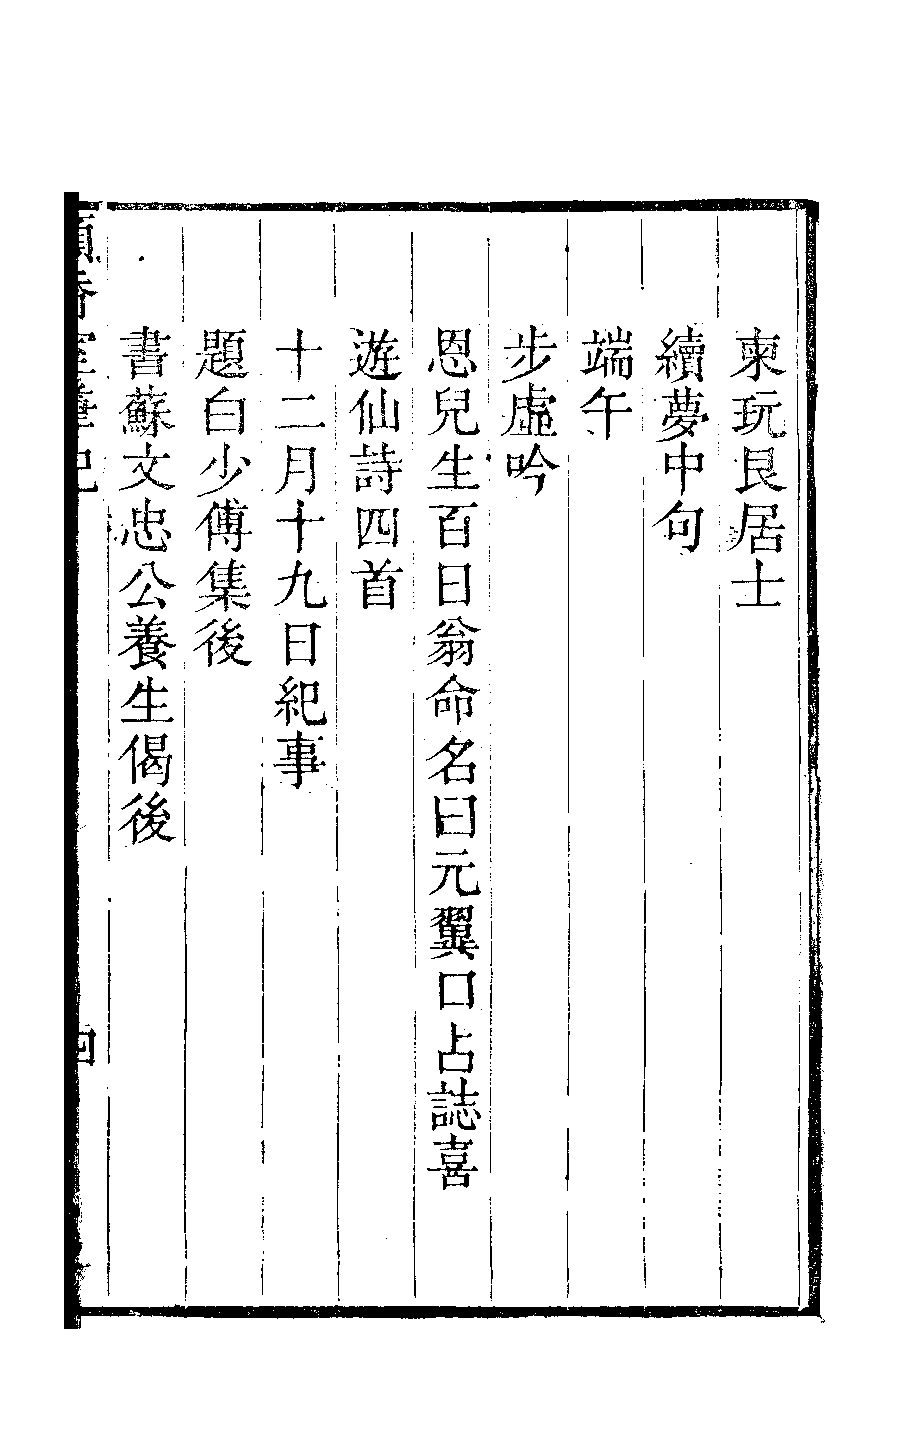 柬玩艮居士
續夢中句
端午
步虛吟
恩兒生百日翁命名曰元翼口占誌喜
遊仙詩四首
十二月十九日紀事
題白少傅集後
書蘇文忠公養生偈後
四